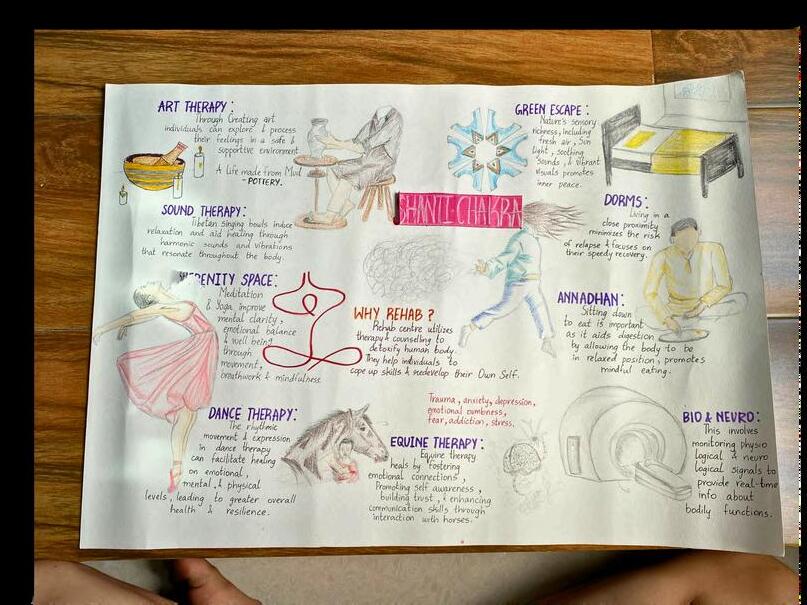 ART THERAPY:
Through Creating art
individuals can explore & process
their feelings in a safe &
supportive environment
A Life made from Mud
- POTTERY.
GREEN ESCAPE:
Nature's sensory
richness, including
fresh air, Sun
light, soothing
Sounds, & vibrant
visuals promotes
inner peace.
SHANTI-CHAKRA
SOUND THERAPY:
Tibetan singing bowls induce
relaxation and aid healing through
harmonic sounds and vibrations
that resonate throughout the body.
DORMS:
Living in a
close proximity
minimizes the risk
of relapse & focuses on
their speedy recovery.
SERENITY SPACE:
Meditation
& Yoga improve
mental clarity,
emotional balance
& well being
through
movement,
breathwork & mindfulness
WHY REHAB?
Rehab centre utilizes
therapy & counseling to
detoxify human body.
They help individuals to
cope up skills & redevelop their Own Self.
ANNADHAN:
Sitting down
to eat is important
as it aids digestion
by allowing the body to be
in relaxed position, promotes
mindful eating.
Trauma, anxiety, depression,
emotional numbness,
fear, addiction, stress.
DANCE THERAPY:
The rhythmic
movement & expression
in dance therapy
can facilitate healing
on emotional,
mental & physical
levels, leading to greater overall
health & resilience.
EQUINE THERAPY:
Equine therapy
heals by fostering
emotional connections,
Promoting self awareness,
building trust, & enhancing
communication skills through
interaction with horses.
BIO & NEURO:
This involves
monitoring physio
logical & neuro
logical signals to
provide real-time
info about
bodily functions.